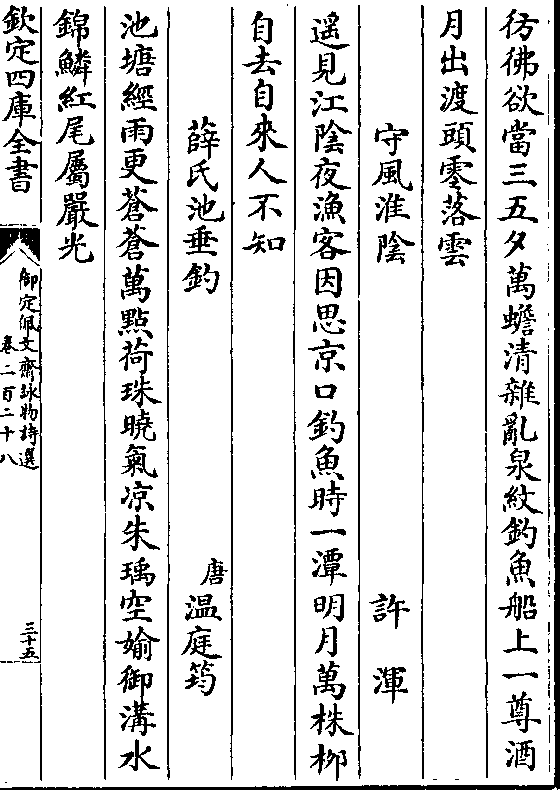 彷彿欲當三五夕萬蟾清雜亂泉紋釣魚船上一尊酒
月出渡頭零落雲
守風淮陰　許渾
遥見江陰夜漁客因思京口釣魚時一潭明月萬株栁
自去自來人不知
薛氏池垂釣　唐温庭筠
池塘經雨更蒼蒼萬點荷珠曉氣凉朱瑀空媮御溝水
錦鱗紅尾屬嚴光
欽定四庫全書
御定佩文齋詠物詩選
卷二百二十八
三十五